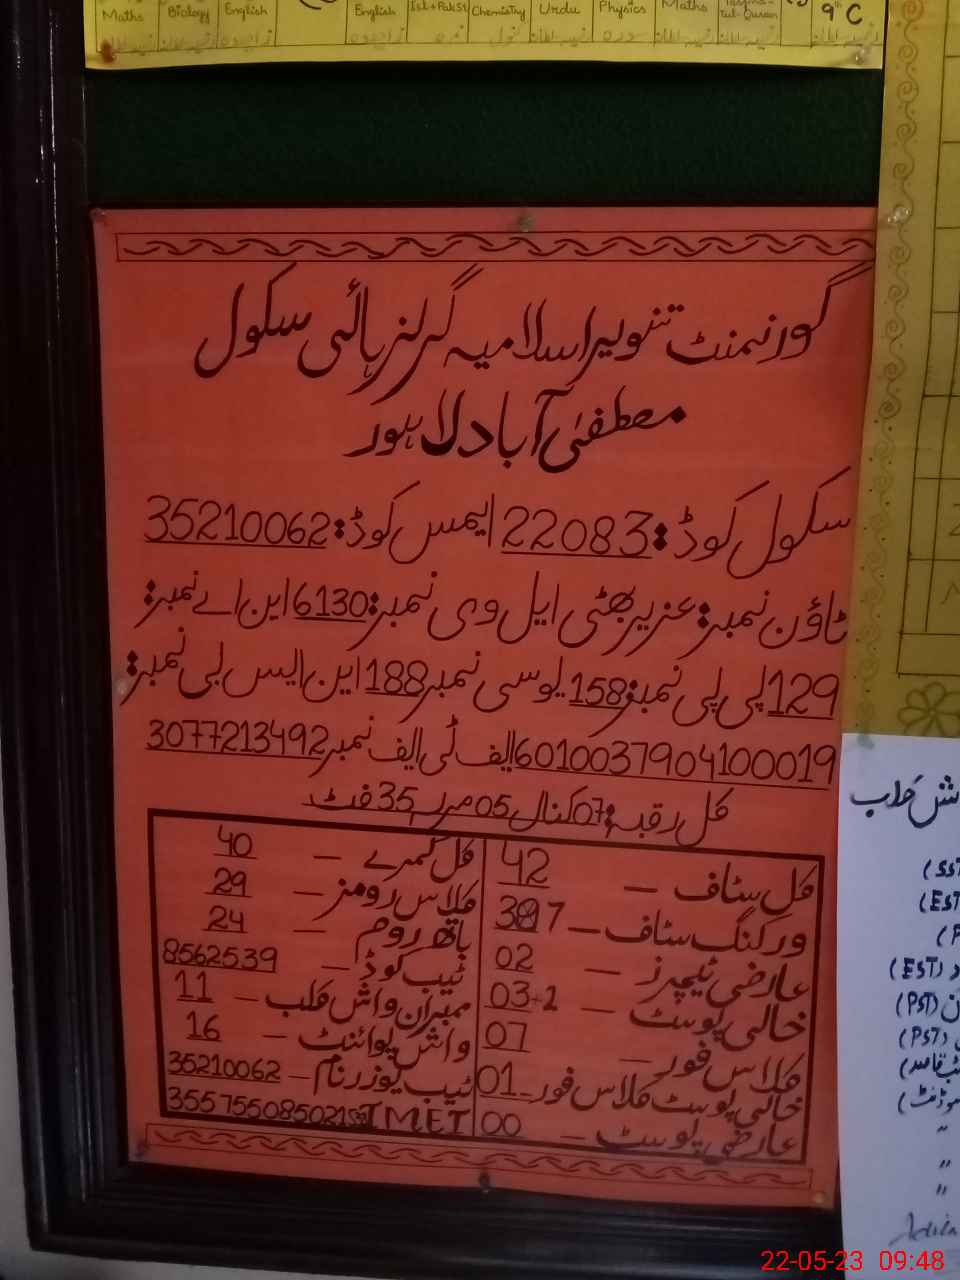 Maths Biology English English Isl+Pak St Chemistry Urdu Physics Maths
9th C
گورنمنٹ تنویر اسلامیہ گرلز ہائی سکول
مصطفیٰ آباد لاہور
سکول کوڈ: 22083 ایمس کوڈ: 35210062
ٹاؤن نمبر: عزیز بھٹی ایل وی نمبر: 6130 این اے نمبر:
129 پی پی نمبر: 158 یو سی نمبر 188 این ایس بی نمبر:
6010037904100019 ایف ٹی ایف نمبر 3077213492
کل رقبہ: 07 کنال 05 مرلہ 35 فٹ
کل سٹاف — 42
ورکنگ سٹاف — 7
عارضی ٹیچرز — 02
خالی پوسٹ — 03+1
کلاس فور — 07
خالی پوسٹ کلاس فور — 01
عارضی پوسٹ — 00
کل کمرے — 40
کلاس رومز — 29
باتھ روم — 24
ٹیب کوڈ — 8562539
ممبران واش کلب — 11
واش پوائنٹ — 16
ٹیب یوزر نام — 35210062
IMEI
واش کلب
(EST)
(PST)
(PST)
22-05-23 09:48